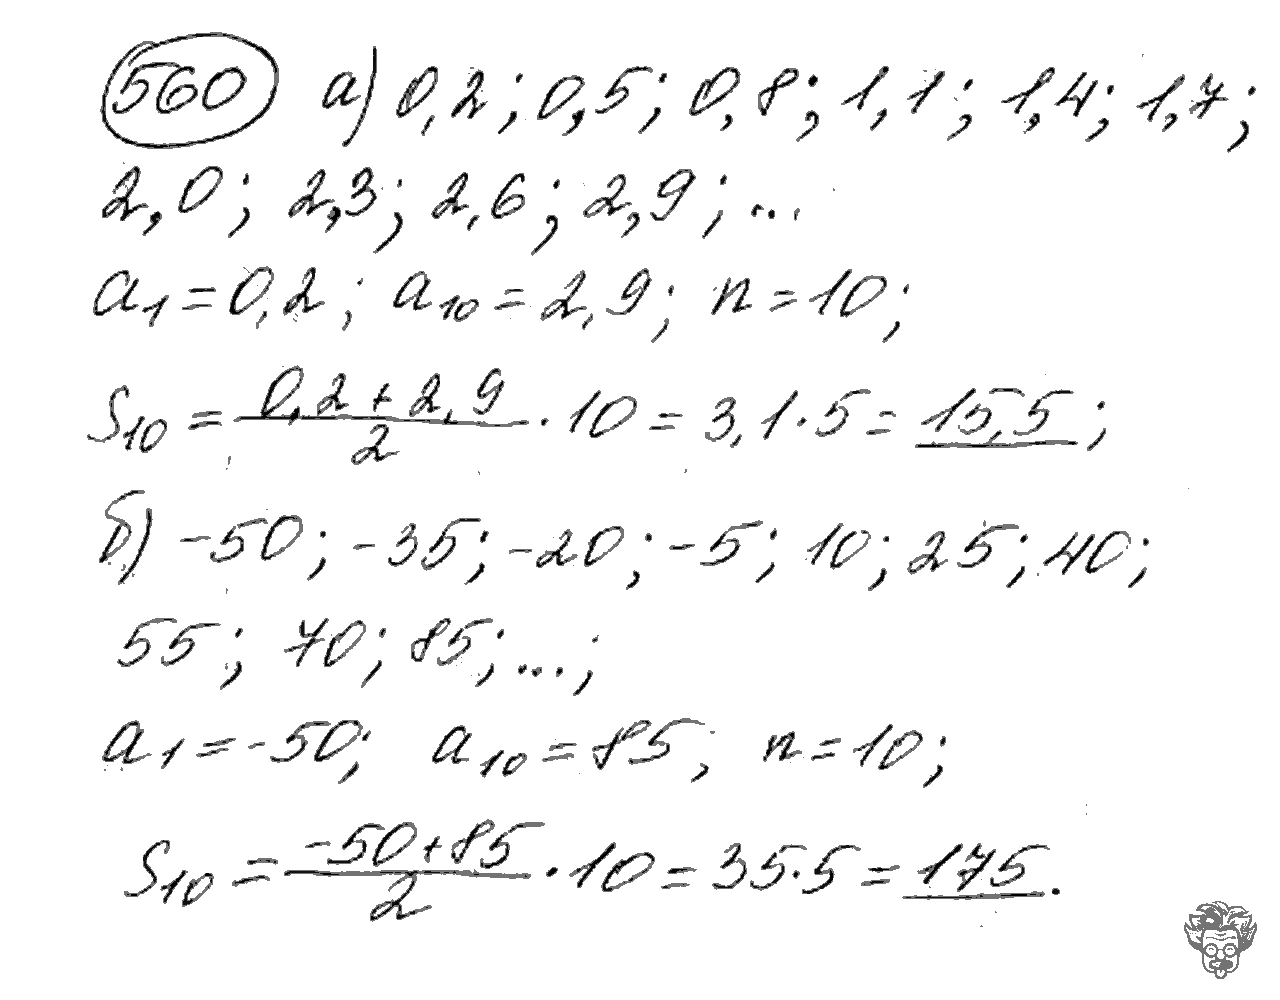 560 а) 0,2; 0,5; 0,8; 1,1; 1,4; 1,7;
2,0; 2,3; 2,6; 2,9; ...
a₁ = 0,2; a₁₀ = 2,9; n = 10;
S₁₀ = (0,2 + 2,9)/2 · 10 = 3,1 · 5 = 15,5;
б) -50; -35; -20; -5; 10; 25; 40;
55; 70; 85; ...;
a₁ = -50; a₁₀ = 85; n = 10;
S₁₀ = (-50+85)/2 · 10 = 35 · 5 = 175.